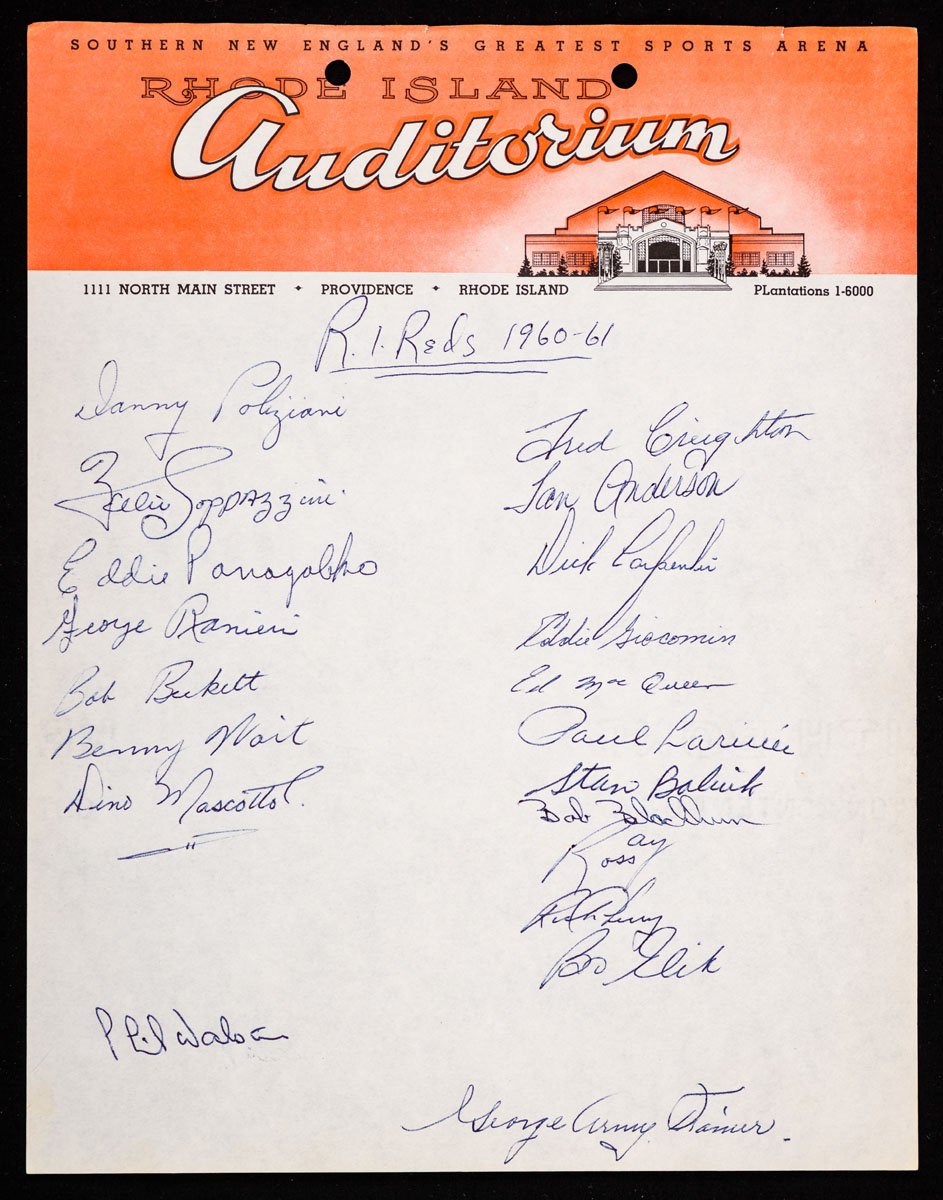 SOUTHERN NEW ENGLAND'S GREATEST SPORTS ARENA
RHODE ISLAND
Auditorium
1111 NORTH MAIN STREET ✦ PROVIDENCE ✦ RHODE ISLAND PLantations 1-6000
R.I. Reds 1960-61
Danny Poliziani
Zellio Toppazzini
Eddie Panagabko
George Ranieri
Bob Beckett
Benny Woit
Dino Mascotto
Phil Watson
Fred Creighton
Ian Anderson
Dick Carpenter
Eddie Giacomin
Ed Mac Queen
Paul Larivée
Stan Baluik
Bob Blackburn
Ray
Ross
Bo Elik
George Army Trainer.